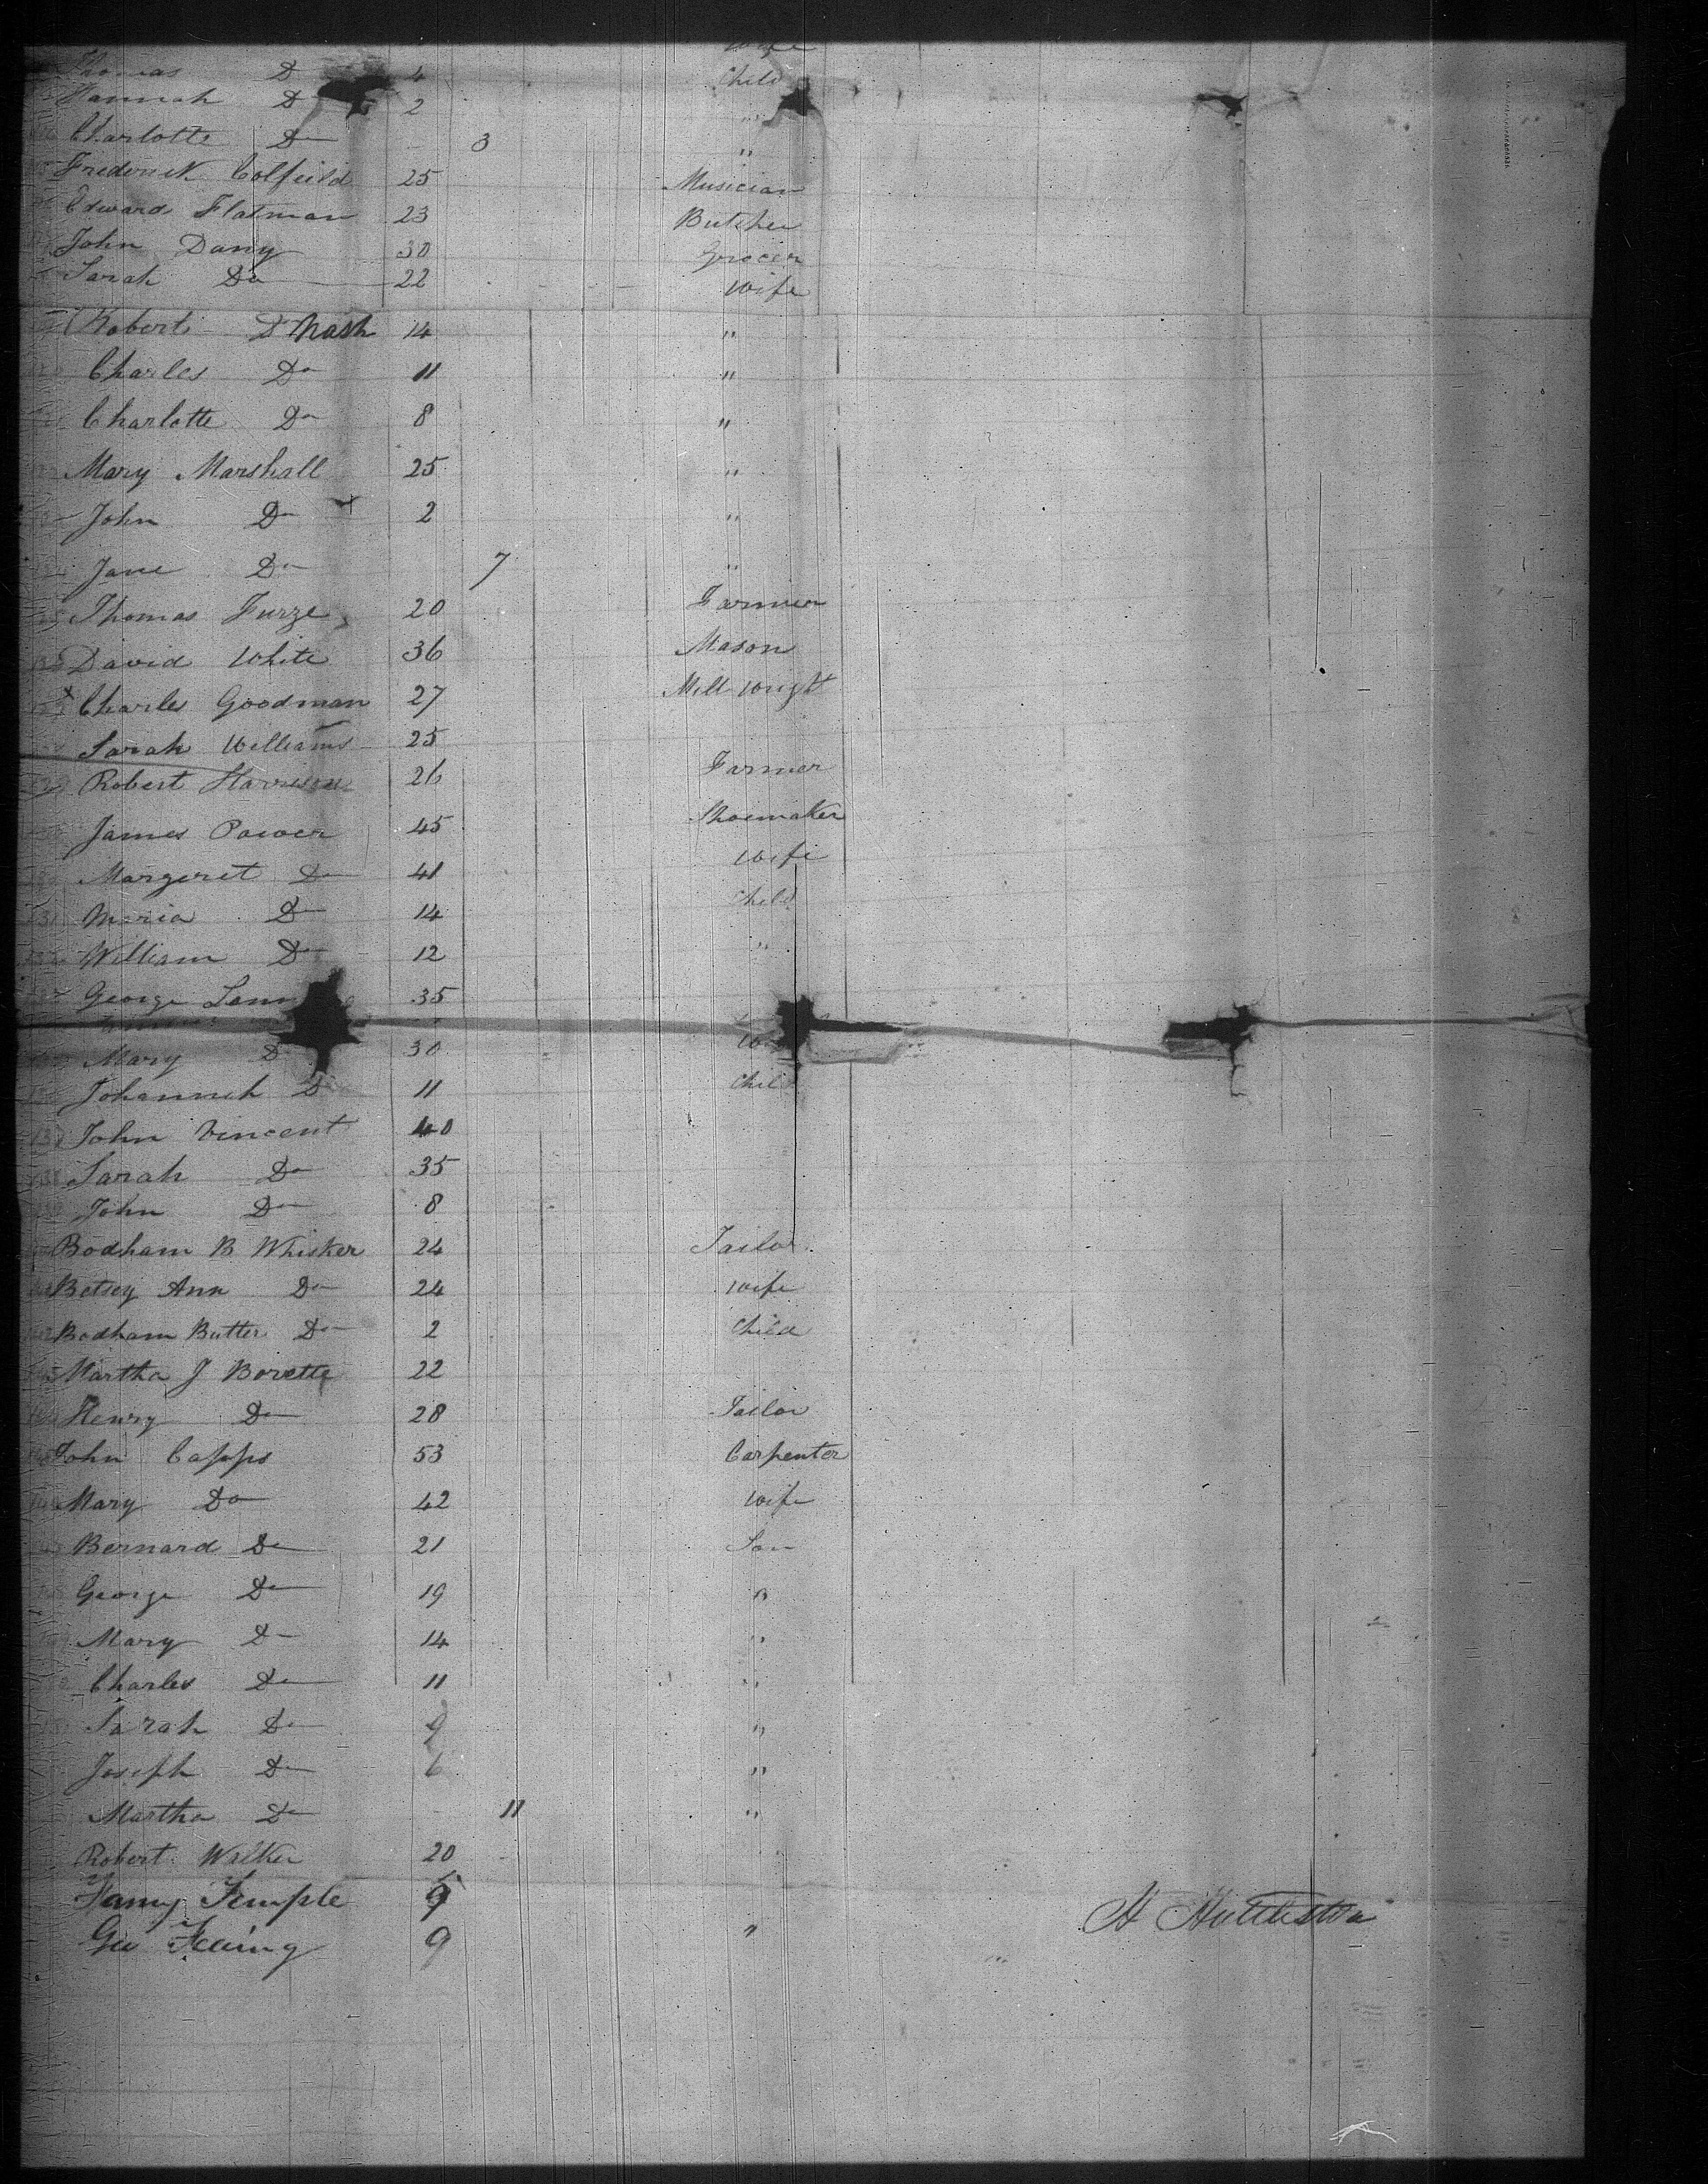 wife
Thomas Do 4 Child
Hannah Do 2 "
Charlotte Do 3 "
Frederick Colfeild 25 Musician
Edward Flatman 23 Butcher
John Dany 30 Grocer
Sarah Do 22 wife
Robert Do Nash 14 "
Charles Do 11 "
Charlotte Do 8 "
Mary Marshall 25 "
John Do 2 "
Jane Do 7 "
Thomas Furze 20 Farmer
David White 36 Mason
Charles Goodman 27 Mill wright
Sarah Williams 25
Robert Harrison 26 Farmer
James Power 45 Shoemaker
Margeret Do 41 wife
Maria Do 14 Child
William Do 12 "
George 35
Mary D 30
Johannah D 11 Child
John Vincent 40
Sarah Do 35
John Do 8
Bodham B Whisker 24 Tailor
Betsey Ann Do 24 wife
Bodham Butter Do 2 Child
Martha J Borette 22
Henry Do 28 Tailor
John Capps 53 Carpenter
Mary Do 42 wife
Bernard Do 21 Son
George Do 19 "
Mary Do 14 "
Charles Do 11 "
Sarah Do 9 "
Joseph Do 6 "
Martha Do 11 "
Robert Walker 20
Temple
9 "